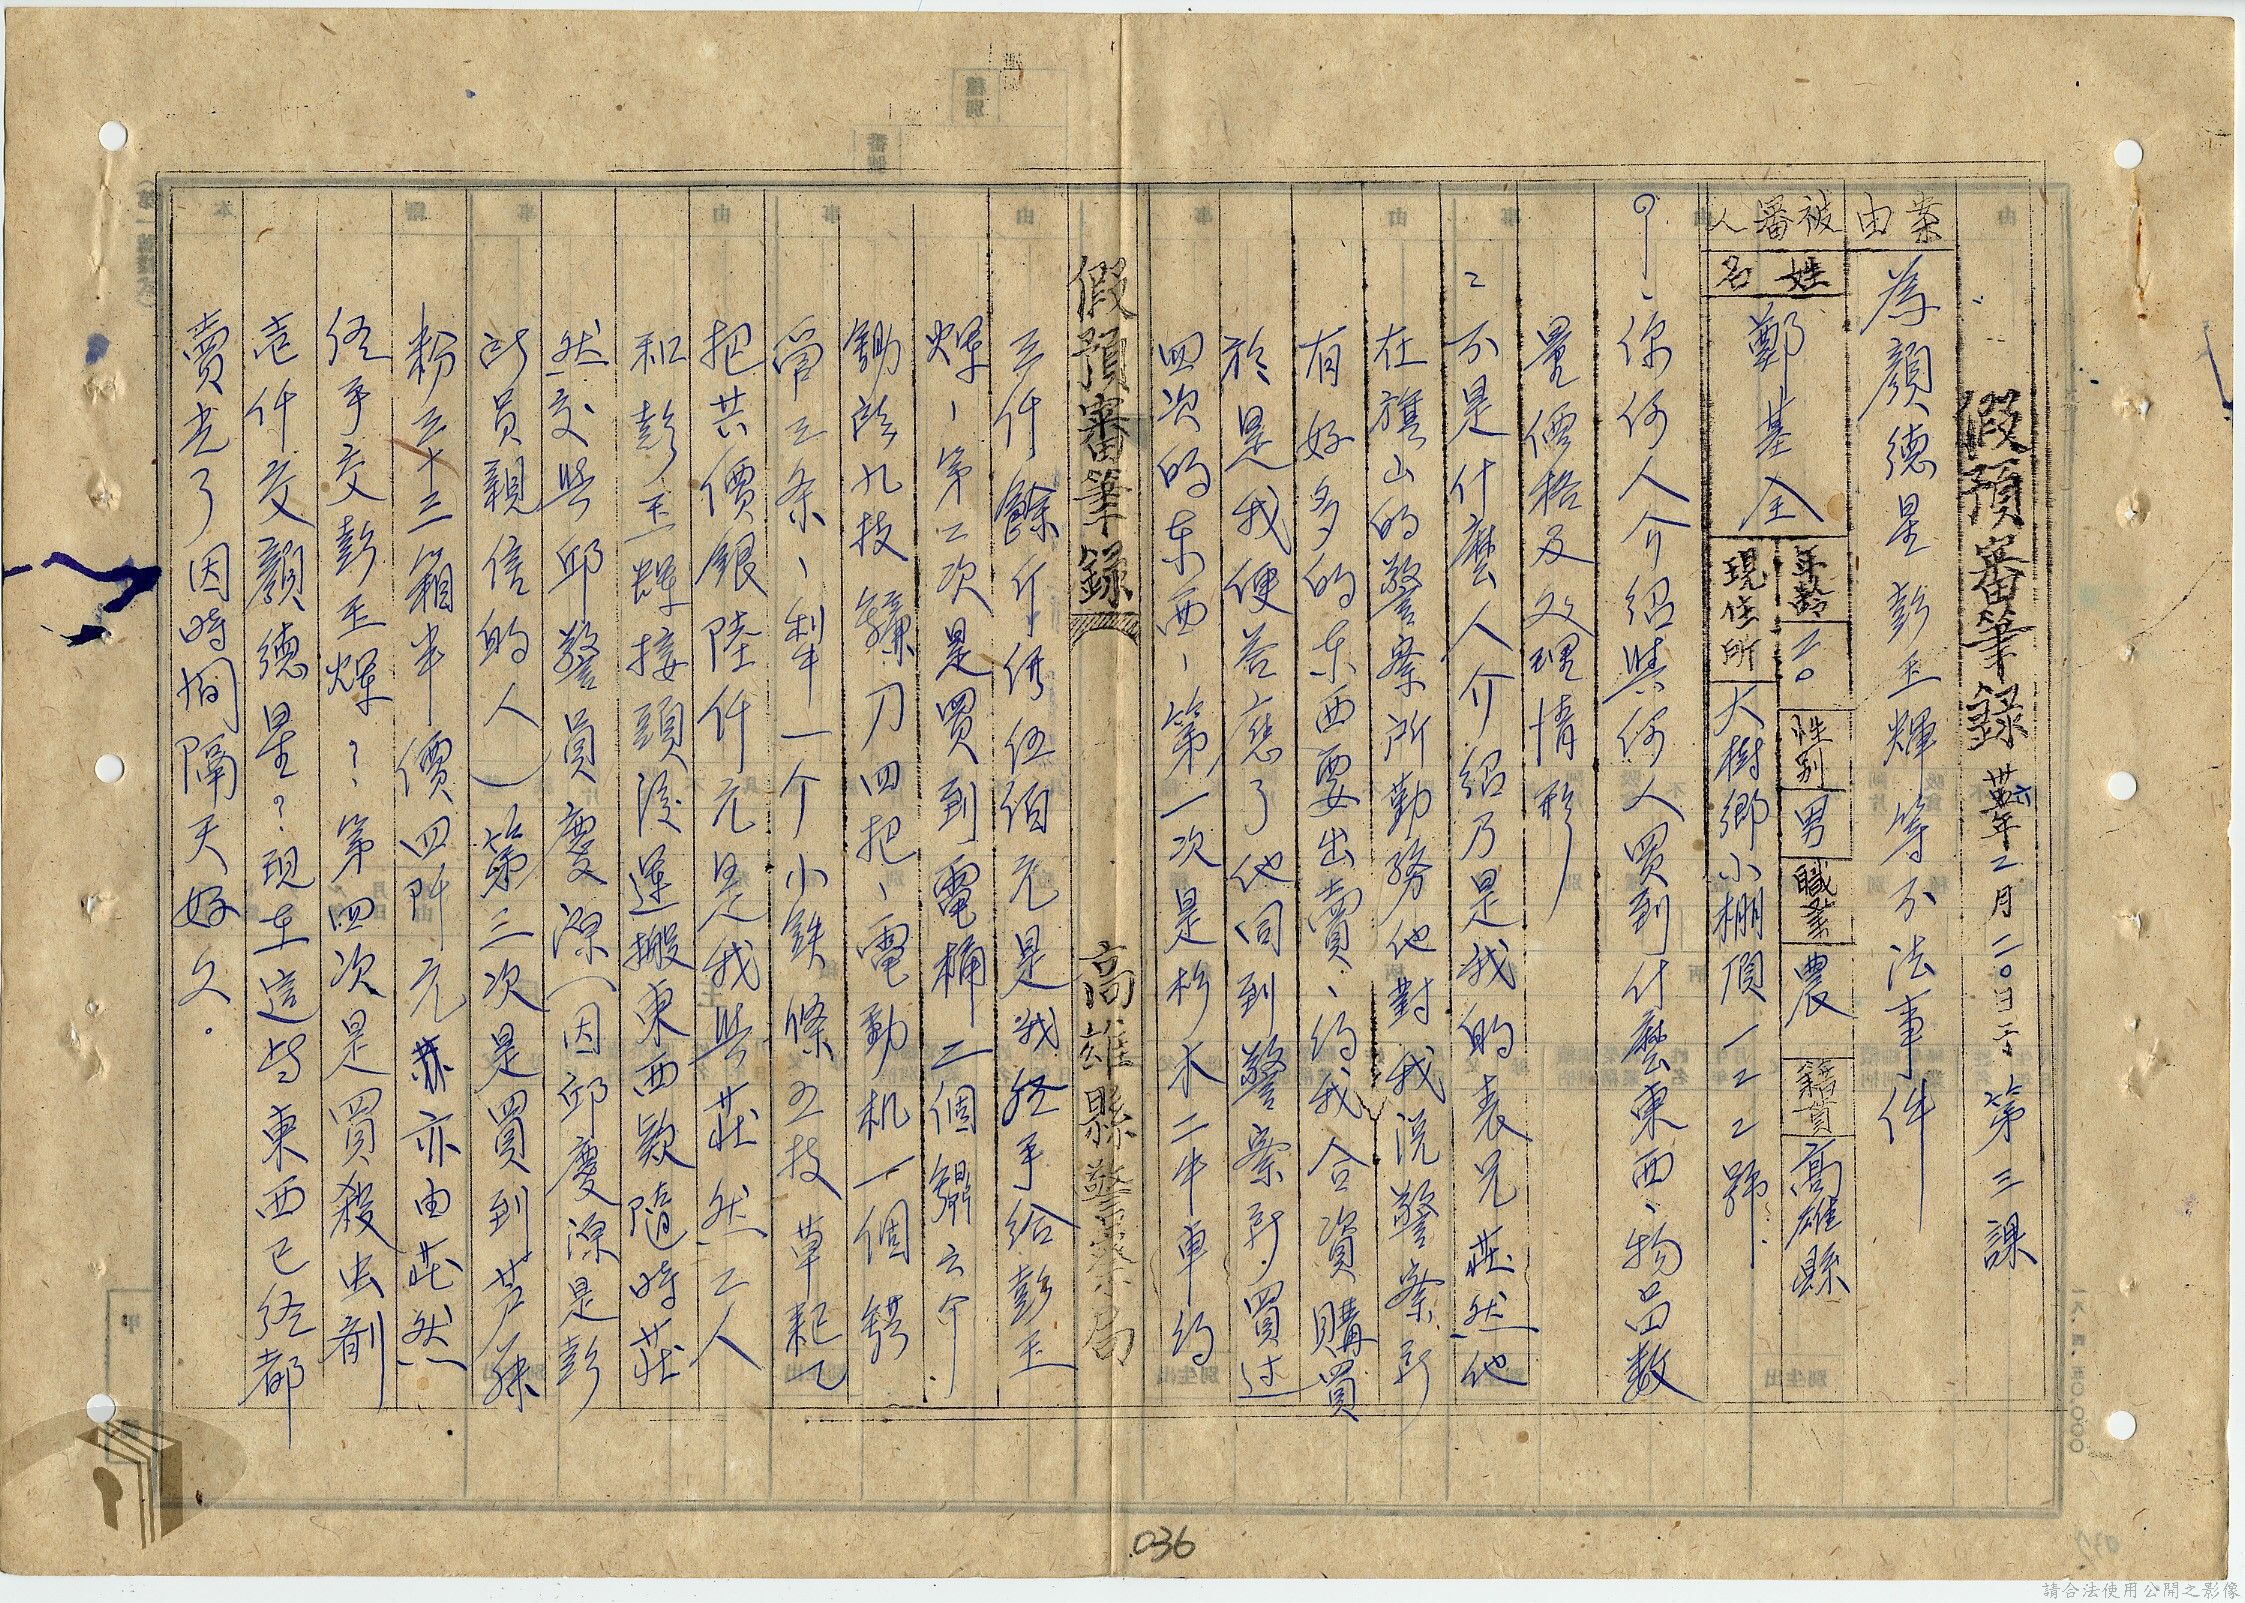 假預審筆錄 卅六年二月二〇日于第三課
案由 為顏德星彭玉輝等不法事件
被審人 姓名 鄭基全 年齡 二〇 性別 男 職業 農 籍貫 高雄縣
現住所 大樹鄉小棚頂一二二號
你何人介紹與何人買到什麼東西、物品數
量價格及处理情形
不是什麼人介紹乃是我的表兄莊然他
在旗山的警察所勤務他對我說警察所
有好多的东西要出賣、約我合資購買
於是我便答應了他同到警察所買过
四次的东西、第一次是杉木二牛車約
假預審筆錄 高雄縣警察局
三仟餘斤價伍佰元是我経手給彭玉
輝、第二次是買到電桶二個
鋤頭九枝鐮刀四把、電動机一個
管三条、犁一个小鉄條五枝草耙乙
把共價銀陸仟元是我與莊然二人
和彭玉輝接頭後運搬東西欵隨時莊
然交與邱警員慶源(因邱慶源是彭
所員親信的人)第三次是買到芦藤
粉三十三箱半價四阡元亦由莊然
経手交彭玉輝?第四次是買殺虫剤
壱仟交顏德星?現在這些東西已経都
賣光了因時間隔天好久。
036
請合法使用公開之影像